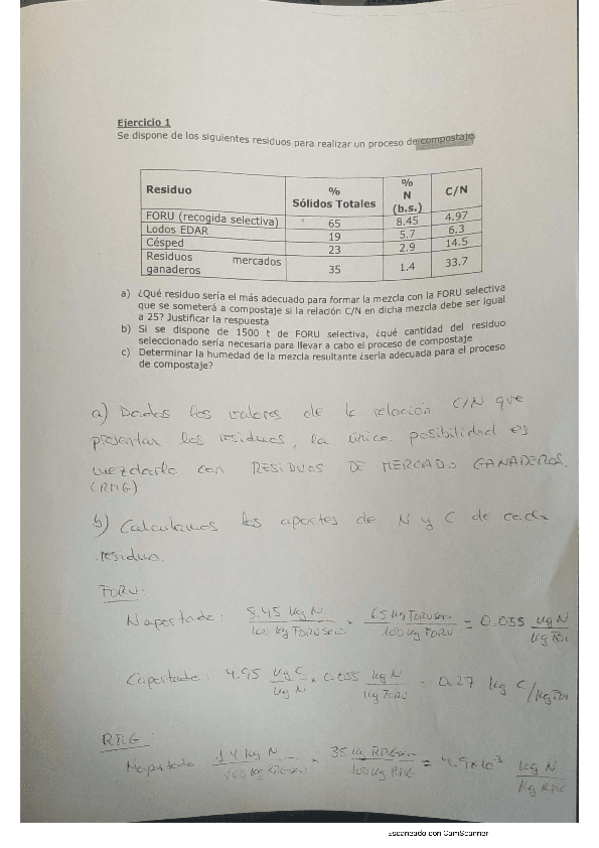 Ejercicio 1
Se dispone de los siguientes residuos para realizar un proceso de compostaje.
Residuo % Sólidos Totales % N (b.s.) C/N
FORU (recogida selectiva) 65 8.45 4.97
Lodos EDAR 19 5.7 6.3
Césped 23 2.9 14.5
Residuos mercados ganaderos 35 1.4 33.7
a) ¿Qué residuo sería el más adecuado para formar la mezcla con la FORU selectiva
que se someterá a compostaje si la relación C/N en dicha mezcla debe ser igual
a 25? Justificar la respuesta
b) Si se dispone de 1500 t de FORU selectiva, ¿qué cantidad del residuo
seleccionado sería necesaria para llevar a cabo el proceso de compostaje
c) Determinar la humedad de la mezcla resultante ¿sería adecuada para el proceso
de compostaje?
a) Dados los valores de la relación C/N que
presentan los residuos, la única posibilidad es
mezclarlo con RESIDUOS DE MERCADO GANADEROS.
(RMG)
b) Calculamos los aportes de N y C de cada
residuo.
FORU:
N aportado: 8.45 kg N / 100 kg FORU seco * 65 kg FORU seco / 100 kg FORU = 0.055 kg N /
C aportado: 4.95 kg C / kg N * 0.055 kg N / kg FORU = 0.27 kg C /
RMG:
N aportado 1.4 kg N / 100 kg RMG seco * 35 kg RMG seco / 100 kg RMG = 4.9x10⁻³ kg N / kg RMG
Escaneado con CamScanner